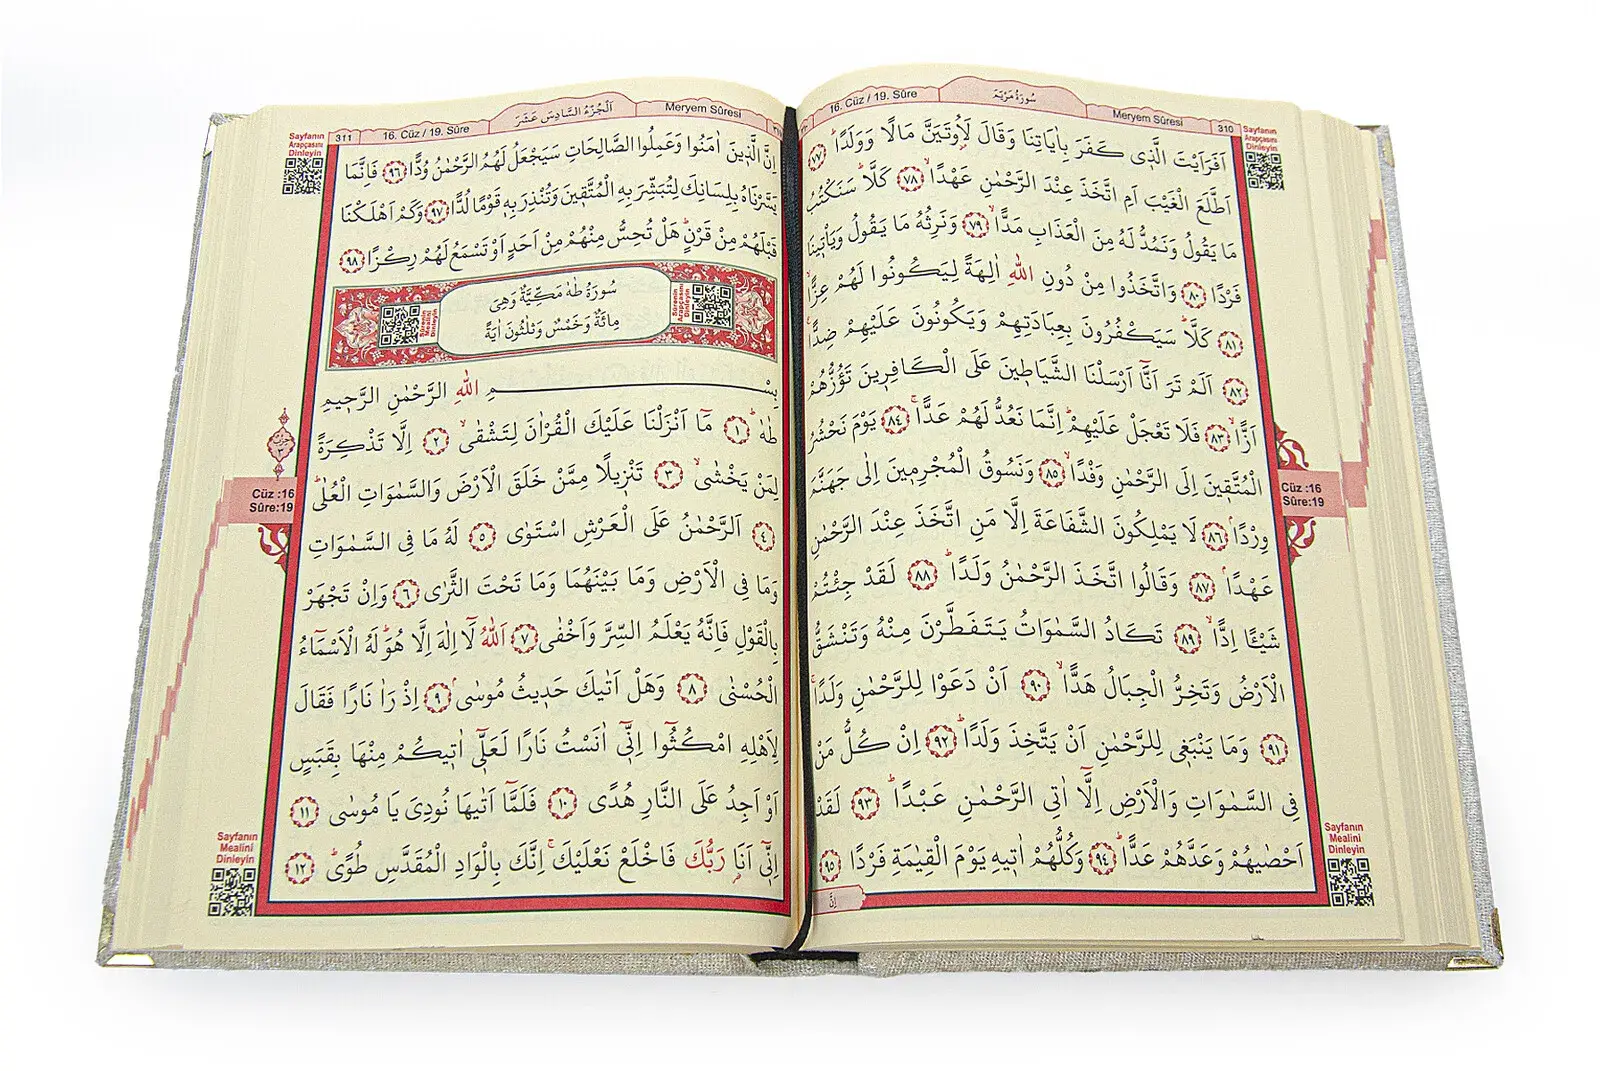 310
Meryem Sûresi
سُورَةُ مَرْيَمَ
16. Cüz / 19. Sûre
Sayfanın
Arapçasını
Dinleyin
اَفَرَاَيْتَ الَّذٖى كَفَرَ بِاٰيَاتِنَا وَقَالَ لَاُوتَيَنَّ مَالًا وَوَلَدًاؕ ﴿٧٧﴾
اَطَّلَعَ الْغَيْبَ اَمِ اتَّخَذَ عِنْدَ الرَّحْمٰنِ عَهْدًاۙ ﴿٧٨﴾ كَلَّاؕ سَنَكْتُبُ
مَا يَقُولُ وَنَمُدُّ لَهُ مِنَ الْعَذَابِ مَدًّاۙ ﴿٧٩﴾ وَنَرِثُهُ مَا يَقُولُ وَيَاْتٖينَا
فَرْدًا ﴿٨٠﴾ وَاتَّخَذُوا مِنْ دُونِ اللّٰهِ اٰلِهَةً لِيَكُونُوا لَهُمْ عِزًّاۙ
﴿٨١﴾ كَلَّاؕ سَيَكْفُرُونَ بِعِبَادَتِهِمْ وَيَكُونُونَ عَلَيْهِمْ ضِدًّاࣖ
﴿٨٢﴾ اَلَمْ تَرَ اَنَّٓا اَرْسَلْنَا الشَّيَاطٖينَ عَلَى الْكَافِرٖينَ تَؤُزُّهُمْ
اَزًّاۙ ﴿٨٣﴾ فَلَا تَعْجَلْ عَلَيْهِمْؕ اِنَّمَا نَعُدُّ لَهُمْ عَدًّاۚ ﴿٨٤﴾ يَوْمَ نَحْشُرُ
الْمُتَّقٖينَ اِلَى الرَّحْمٰنِ وَفْدًاۙ ﴿٨٥﴾ وَنَسُوقُ الْمُجْرِمٖينَ اِلٰى جَهَنَّمَ
وِرْدًاۢ ﴿٨٦﴾ لَا يَمْلِكُونَ الشَّفَاعَةَ اِلَّا مَنِ اتَّخَذَ عِنْدَ الرَّحْمٰنِ
عَهْدًاۢ ﴿٨٧﴾ وَقَالُوا اتَّخَذَ الرَّحْمٰنُ وَلَدًاؕ ﴿٨٨﴾ لَقَدْ جِئْتُمْ
شَيْـًٔا اِدًّاۙ ﴿٨٩﴾ تَكَادُ السَّمٰوَاتُ يَتَفَطَّرْنَ مِنْهُ وَتَنْشَقُّ
الْاَرْضُ وَتَخِرُّ الْجِبَالُ هَدًّاۙ ﴿٩٠﴾ اَنْ دَعَوْا لِلرَّحْمٰنِ وَلَدًاۚ
﴿٩١﴾ وَمَا يَنْبَغٖى لِلرَّحْمٰنِ اَنْ يَتَّخِذَ وَلَدًاؕ ﴿٩٢﴾ اِنْ كُلُّ مَنْ
فِى السَّمٰوَاتِ وَالْاَرْضِ اِلَّٓا اٰتِى الرَّحْمٰنِ عَبْدًاؕ ﴿٩٣﴾ لَقَدْ
اَحْصٰيهُمْ وَعَدَّهُمْ عَدًّاؕ ﴿٩٤﴾ وَكُلُّهُمْ اٰتٖيهِ يَوْمَ الْقِيٰمَةِ فَرْدًا ﴿٩٥﴾
اِنَّ
Cüz :16
Sûre:19
Sayfanın
Mealini
Dinleyin
Meryem Sûresi
اَلْجُزْءُ السَّادِسَ عَشَرَ
16. Cüz / 19. Sûre
311
Sayfanın
Arapçasını
Dinleyin
اِنَّ الَّذٖينَ اٰمَنُوا وَعَمِلُوا الصَّالِحَاتِ سَيَجْعَلُ لَهُمُ الرَّحْمٰنُ وُدًّا ﴿٩٦﴾ فَاِنَّمَا
يَسَّرْنَاهُ بِلِسَانِكَ لِتُبَشِّرَ بِهِ الْمُتَّقٖينَ وَتُنْذِرَ بِهٖ قَوْمًا لُدًّا ﴿٩٧﴾ وَكَمْ اَهْلَكْنَا
قَبْلَهُمْ مِنْ قَرْنٍؕ هَلْ تُحِسُّ مِنْهُمْ مِنْ اَحَدٍ اَوْ تَسْمَعُ لَهُمْ رِكْزًا ﴿٩٨﴾
سُورَةُ طٰهٰ مَكِّيَّةٌ وَهِىَ
مِائَةٌ وَخَمْسٌ وَثَلٰثُونَ اٰيَةً
Sûrenin
Arapçasını
Dinleyin
Sûrenin
Mealini
Dinleyin
بِسْمِ اللّٰهِ الرَّحْمٰنِ الرَّحٖيمِ
طٰهٰؕ ﴿١﴾ مَٓا اَنْزَلْنَا عَلَيْكَ الْقُرْاٰنَ لِتَشْقٰىۙ ﴿٢﴾ اِلَّا تَذْكِرَةً
لِمَنْ يَخْشٰىۙ ﴿٣﴾ تَنْزٖيلًا مِمَّنْ خَلَقَ الْاَرْضَ وَالسَّمٰوَاتِ الْعُلٰىؕ
﴿٤﴾ اَلرَّحْمٰنُ عَلَى الْعَرْشِ اسْتَوٰى ﴿٥﴾ لَهُ مَا فِى السَّمٰوَاتِ
وَمَا فِى الْاَرْضِ وَمَا بَيْنَهُمَا وَمَا تَحْتَ الثَّرٰى ﴿٦﴾ وَاِنْ تَجْهَرْ
بِالْقَوْلِ فَاِنَّهُ يَعْلَمُ السِّرَّ وَاَخْفٰى ﴿٧﴾ اَللّٰهُ لَٓا اِلٰهَ اِلَّا هُوَؕ لَهُ الْاَسْمَٓاءُ
الْحُسْنٰى ﴿٨﴾ وَهَلْ اَتٰيكَ حَدٖيثُ مُوسٰىۢ ﴿٩﴾ اِذْ رَاٰ نَارًا فَقَالَ
لِاَهْلِهِ امْكُثُٓوا اِنّٖٓى اٰنَسْتُ نَارًا لَعَلّٖٓى اٰتٖيكُمْ مِنْهَا بِقَبَسٍ
اَوْ اَجِدُ عَلَى النَّارِ هُدًى ﴿١٠﴾ فَلَمَّٓا اَتٰيهَا نُودِىَ يَا مُوسٰى ﴿١١﴾
اِنّٖٓى اَنَا۬ رَبُّكَ فَاخْلَعْ نَعْلَيْكَۚ اِنَّكَ بِالْوَادِ الْمُقَدَّسِ طُوًىؕ ﴿١٢﴾
حزب
٣
Cüz :16
Sûre:19
Sayfanın
Mealini
Dinleyin